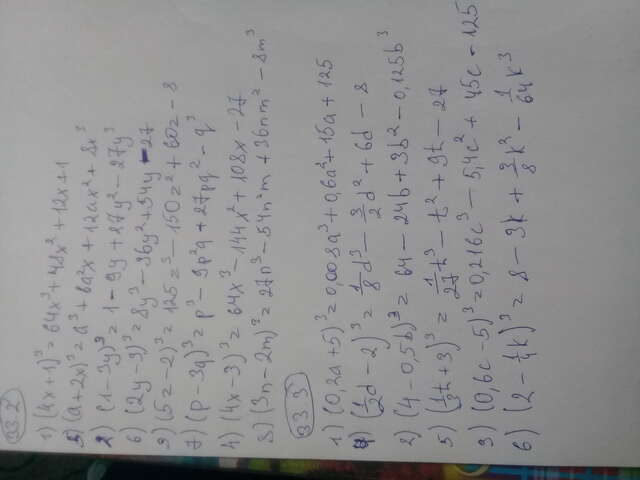 33.2
1) (4x+1)³ = 64x³ + 48x² + 12x + 1
5) (a+2x)³ = a³ + 6a²x + 12ax² + 8x³
2) (1-3y)³ = 1 - 9y + 27y² - 27y³
6) (2y-3)³ = 8y³ - 36y² + 54y - 27
3) (5z-2)³ = 125z³ - 150z² + 60z - 8
7) (p-3q)³ = p³ - 9p²q + 27pq² - q³
4) (4x-3)³ = 64x³ - 144x² + 108x - 27
8) (3n-2m)³ = 27n³ - 54n²m + 36nm² - 8m³
33.3
1) (0,2a+5)³ = 0,008a³ + 0,6a² + 15a + 125
4) (1/2d - 2)³ = 1/8d³ - 3/2d² + 6d - 8
2) (4-0,5b)³ = 64 - 24b + 3b² - 0,125b³
5) (1/3t + 3)³ = 1/27t³ - t² + 9t - 27
3) (0,6c-5)³ = 0,216c³ - 5,4c² + 45c - 125
6) (2 - 1/4k)³ = 8 - 3k + 3/8k² - 1/64k³